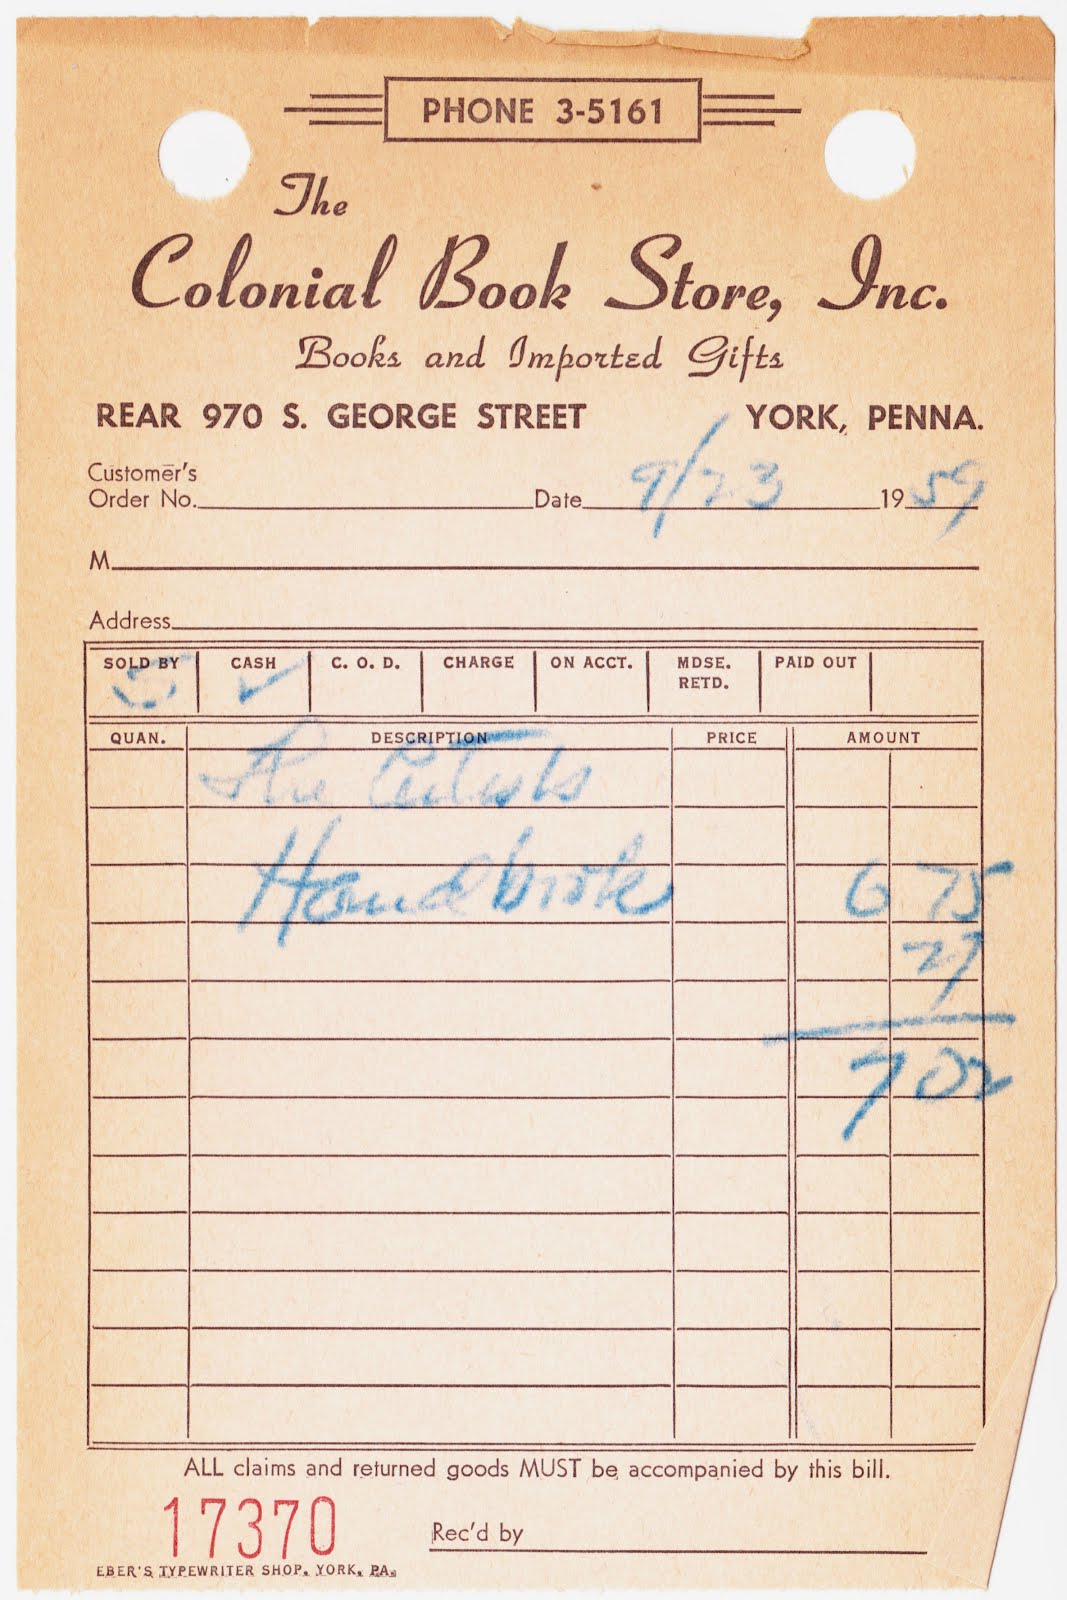 PHONE 3-5161
The
Colonial Book Store, Inc.
Books and Imported Gifts
REAR 970 S. GEORGE STREET YORK, PENNA.
Customer's
Order No. Date 9/23 19 59
M
Address
SOLD BY CASH ✓ C. O. D. CHARGE ON ACCT. MDSE. RETD. PAID OUT
QUAN. DESCRIPTION PRICE AMOUNT
The Artists
Handbook 6 75
27
7 02
ALL claims and returned goods MUST be accompanied by this bill.
17370
Rec'd by
EBER'S TYPEWRITER SHOP, YORK, PA.